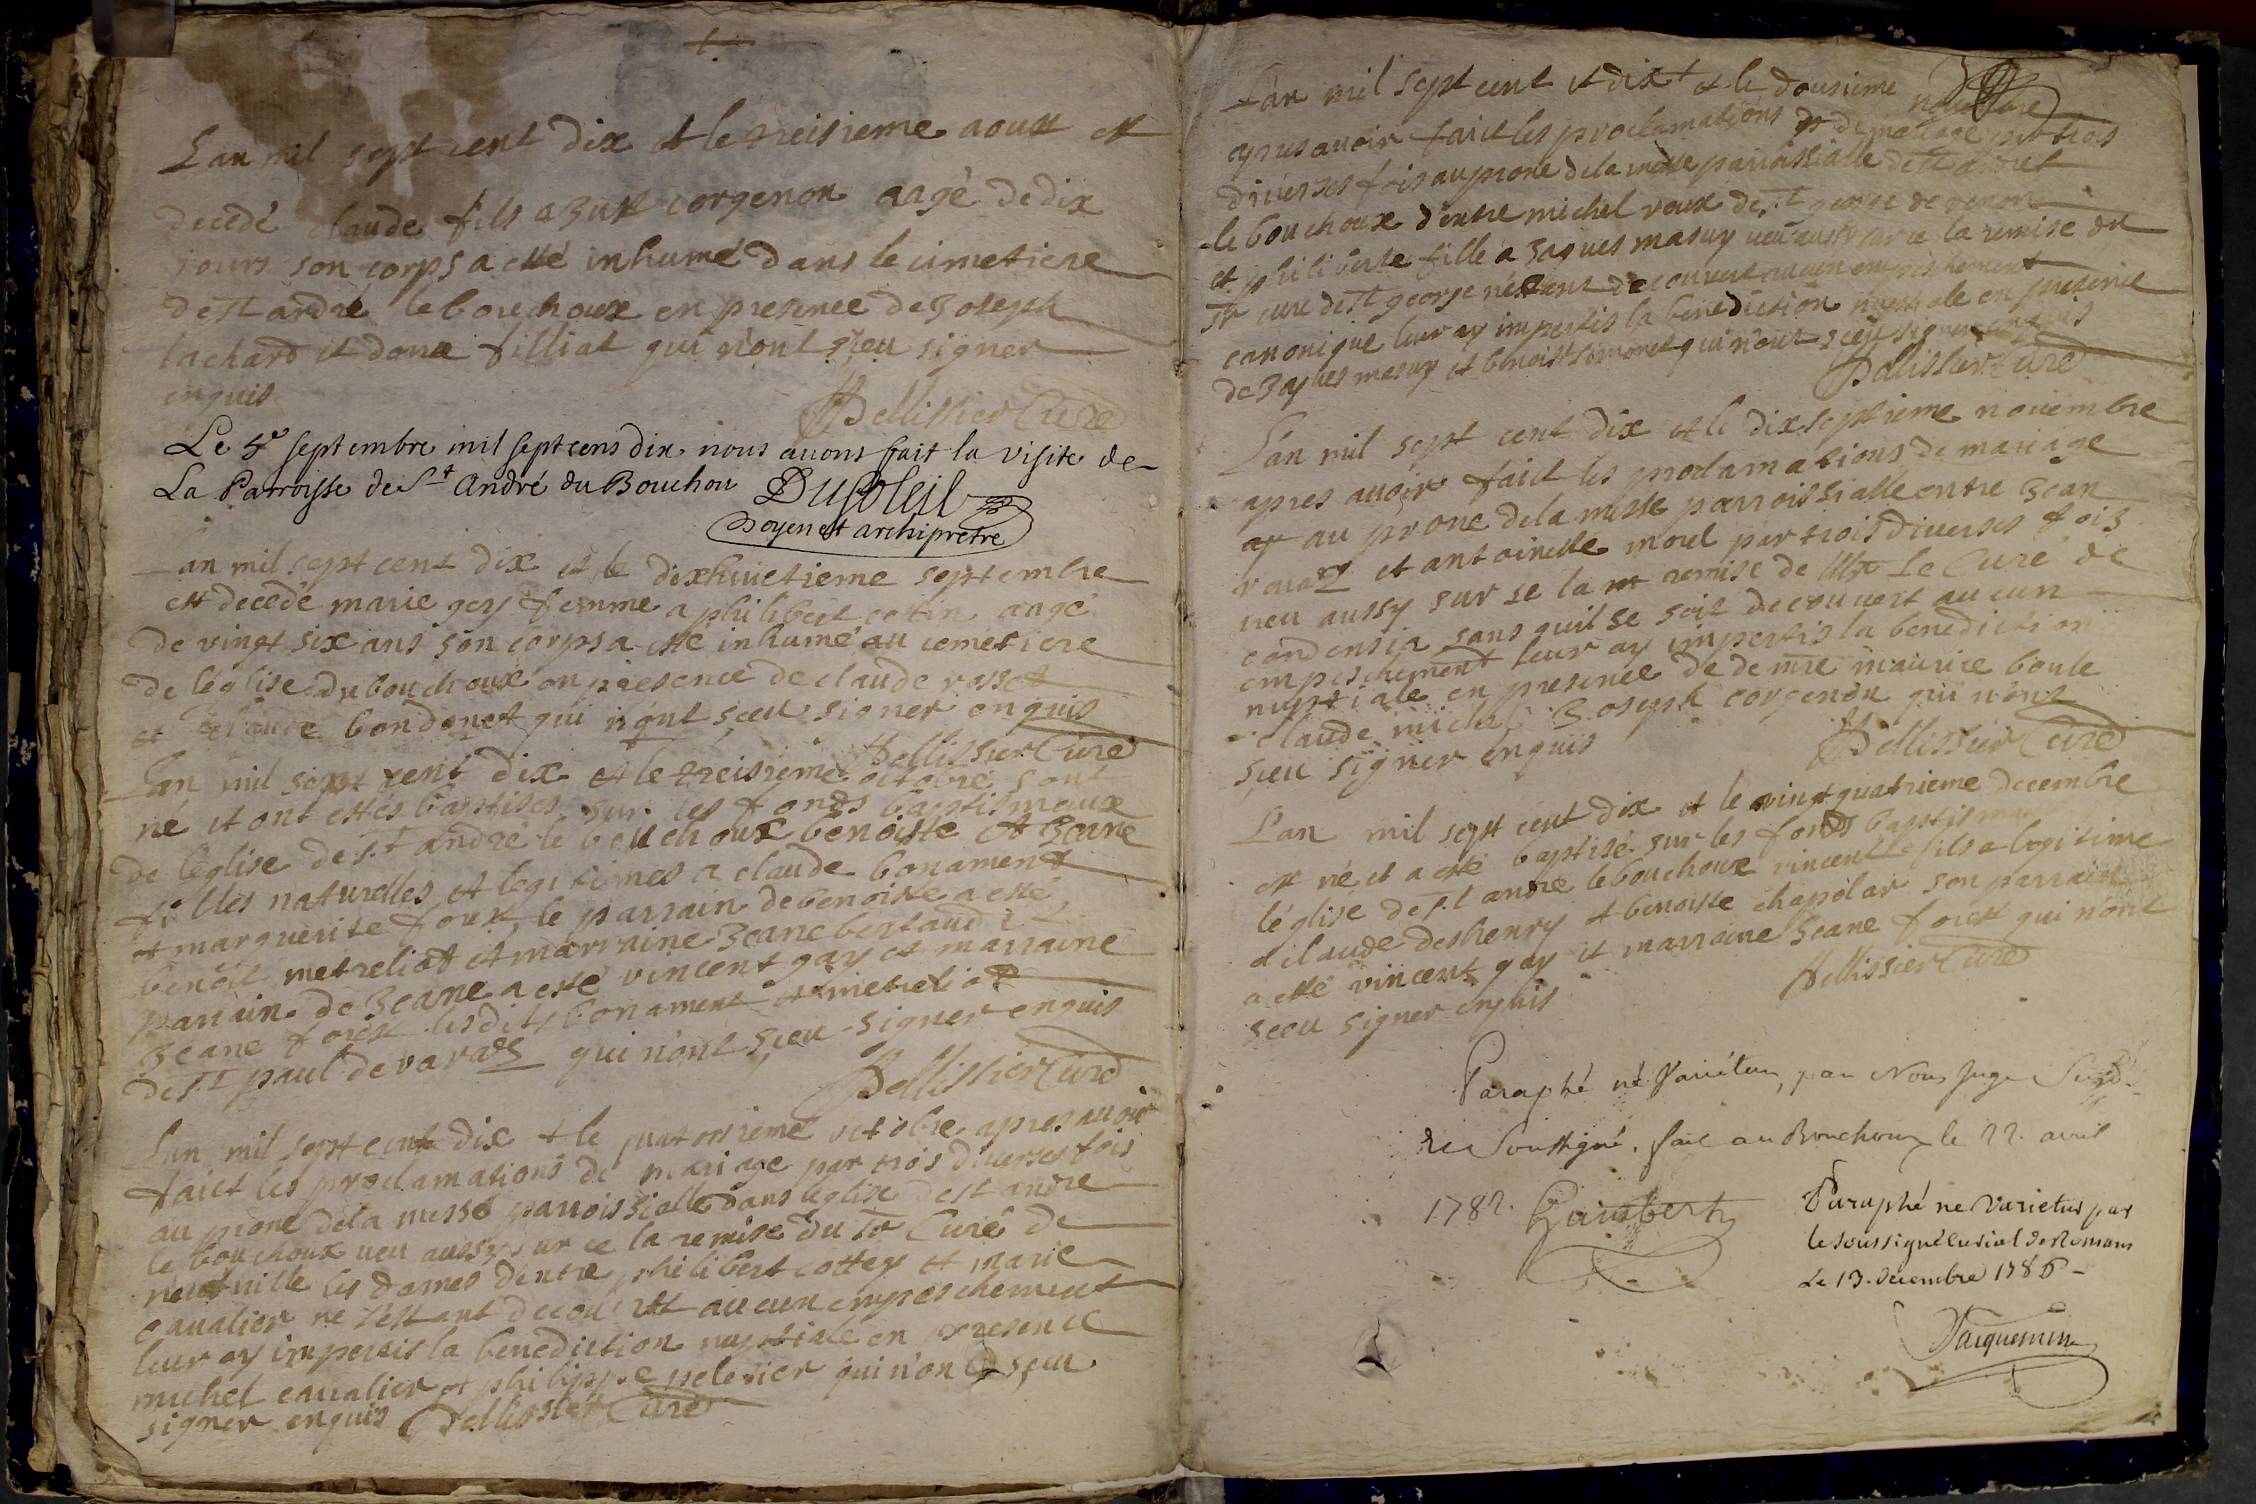 L'an mil sept cent dix et le treisieme aoust est
decedé claude fils a Just corgenon aagé de dix
jours son corps a esté inhumé dans le cimetiere
de St andré le bouchoux en presence de Joseph
lachard et dona filliat qui n'ont sçeu signer
enquis
Pellissier Curé
Le 4e septembre mil sept cens dix nous avons fait la visite de
La Parroisse de St André du Bouchou Dusoleil
Doyen et archipretre
L'an mil sept cent dix et le dixhuictieme septembre
est decedé marie gey femme a philibert cottin aagé
de vingt six ans son corps a esté inhumé au cemetiere
de léglise du bouchoux en presence de claude rosset
et claude bondonet qui n'ont sçeu signer enquis
Pellissier Curé
L'an mil sept cent dix et le treisieme octobre sont
né et ont estés baptisés sur les fonds baptismaux
de léglise de St andré le bouchoux benoiste et Jeane
filles naturelles et legitimes a claude bonament
et marguerite forest, le parrain de benoiste a esté
benoit metreliat et marraine Jeane bertaudi
parrain de Jeane a esté vincent gay et marraine
Jeane forest lesdits bonament et metreliat
de St paul de varax qui n'ont sçeu signer enquis
Pellissier Curé
L'an mil sept cent dix et le quatorsieme octobre apres avoir
faict les proclamations de mariage par trois diverses fois
au prone de la messe parroissialle dans léglise de st andré
le bouchoux veu aussy sur ce la remise du sr Curé de
neufville les dames d'entre philibert cottey et marie
cavalier ne s'estant decouvert aucun empeschement
leur ay impertis la benediction nuptiale en presence
michel cavalier et philippe peletier qui n'ont sçeu
signer enquis Pellissier Curé
L'an mil sept cent et dix et le dousieme novembre
apres avoir faict les proclamations de mariage par trois
diverses fois au prone de la messe parroissialle de St andré
le bouchoux d'entre michel roux de St george de renon
et philiberte fille a Jaques masuy veu aussy sur ce la remise du
sr curé de St george n'estant decouvert aucun empeschement
canonique leur ay impertis la benediction nuptiale en presence
de Jaques masuy et benoist simonet qui n'ont sçeu signer enquis
Pellissier Curé
L'an mil sept cent dix et le dix septieme novembre
apres avoir faict les proclamations de mariage
au prone de la messe parroissialle entre Jean
et antoinette morel par trois diverses fois
veu aussy sur ce la remise de Mr Le Curé de
condensia sans quil se soit decouvert aucun
empeschement leur ay impertis la benediction
nuptiale en presence de maurice boule
claude michel Joseph corgenon qui n'ont
sçeu signer enquis Pellissier Curé
L'an mil sept cent dix et le vingt quatrieme decembre
est né et a esté baptisé sur les fonds baptismaux
léglise de St andré le bouchoux vincent fils a legitime
a claude deshenry et benoiste chapolar son parrain
a esté vincent gay et marraine Jeane forest qui n'ont
sceu signer enquis Pellissier Curé
Paraphé né Variétur, par Nous Juge
Soussigné. fait au Bouchoux le 22. avril
1782. Guimbert
Paraphé ne Varietur par
le soussigné de Romans
Le 13. decembre 1786
Jacquemin